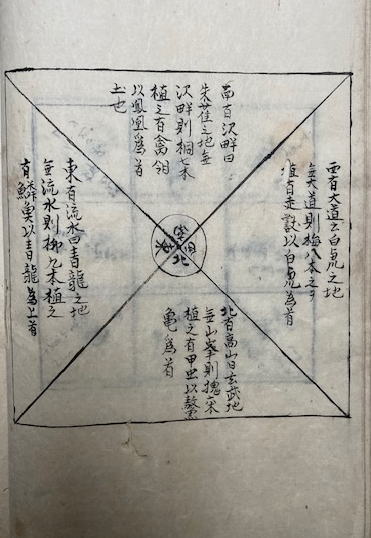 南有沢畔曰
朱雀之地無
沢畔則桐七本
植之百禽翔
以鳳凰為首
土也
西有大道云白虎之地
無大道則梅八本之
植百走獣以白虎為首
東有流水曰青龍之地
無流水則柳九本植之
有鱗魚以青龍為上首
北有高山曰玄武地
無山峯則槐六本
植之有甲虫以鼇
亀為首
北